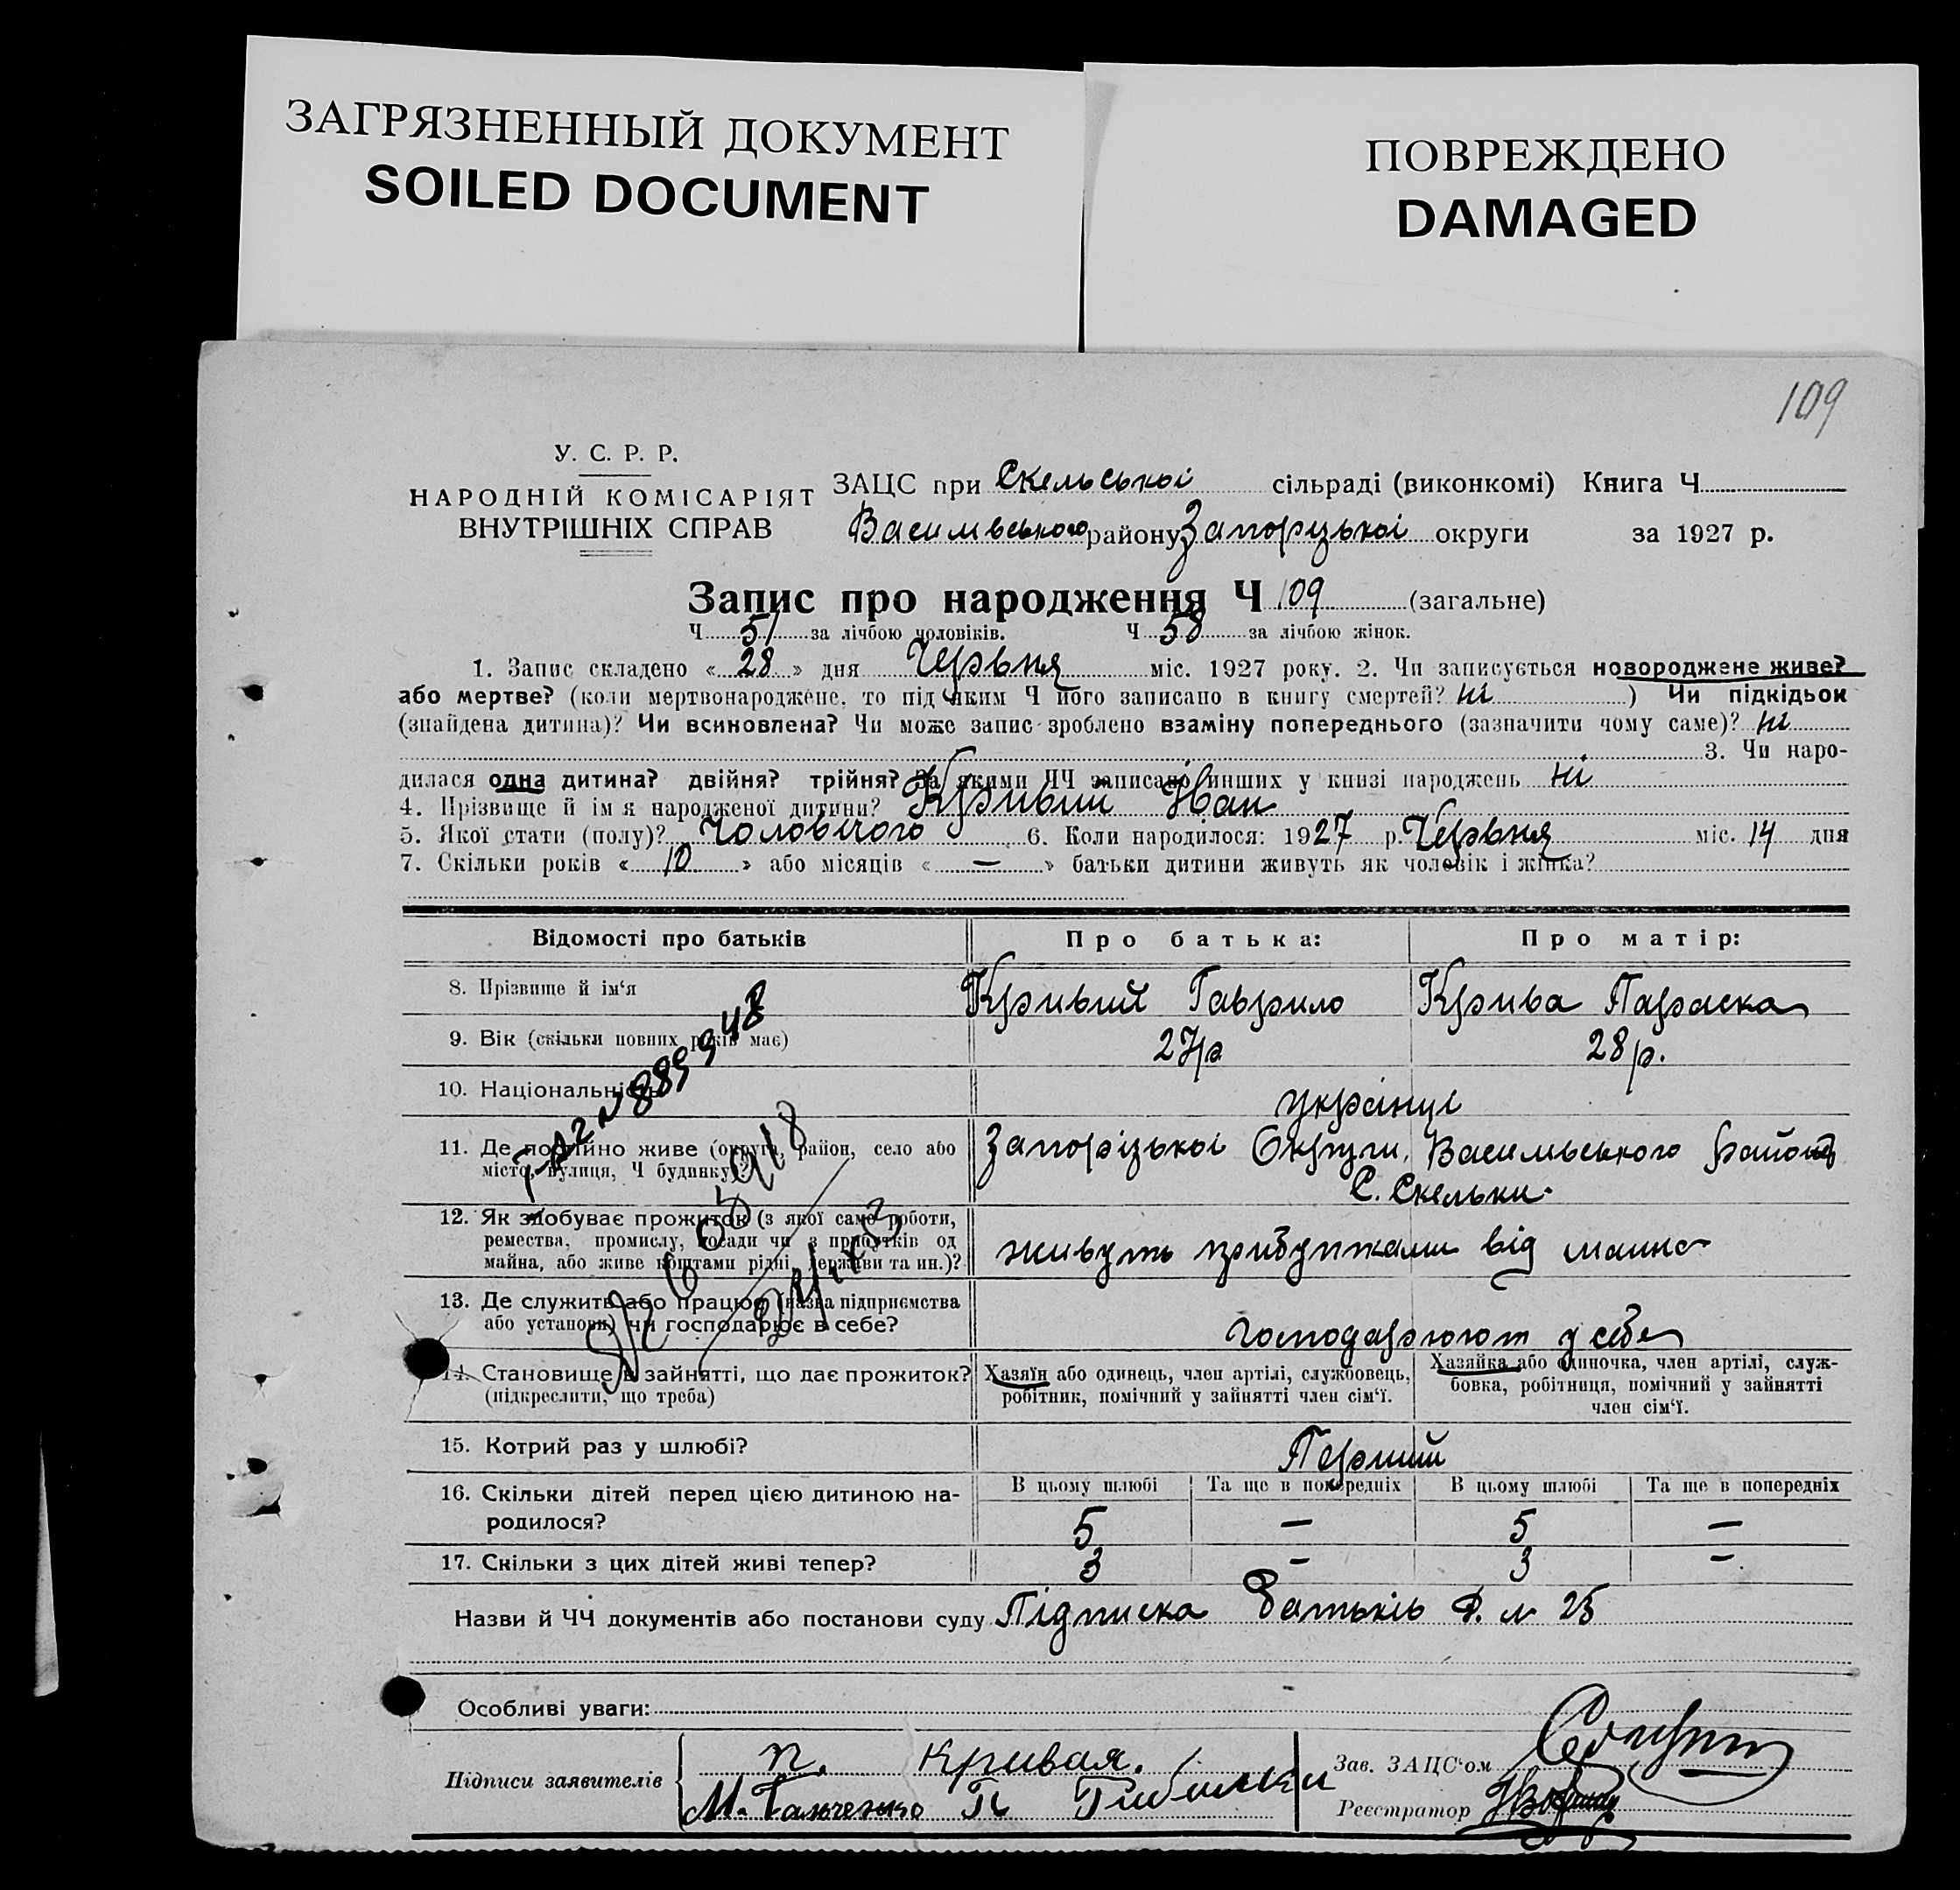 ЗАГРЯЗНЕННЫЙ ДОКУМЕНТ
SOILED DOCUMENT
ПОВРЕЖДЕНО
DAMAGED
109
У. С. Р. Р.
НАРОДНІЙ КОМІСАРІЯТ
ВНУТРІШНІХ СПРАВ
ЗАЦС при Скельської сільраді (виконкомі) Книга Ч
Василівського району Запорізької округи за 1927 р.
Запис про народження Ч 109 (загальне)
Ч 51 за лічбою чоловіків. Ч 58 за лічбою жінок.
1. Запис складено « 28 » дня Червня міс. 1927 року. 2. Чи записується новороджене живе?
або мертве? (коли мертвонароджене, то під яким Ч його записано в книгу смертей? ні ) Чи підкідьок
(знайдена дитина)? Чи всиновлена? Чи може запис зроблено взаміну попереднього (зазначити чому саме)? ні
3. Чи наро-
дилася одна дитина? двійня? трійня? За якими ЧЧ записано инших у книзі народжень ні
4. Прізвище й ім я народженої дитини? Кривий Іван
5. Якої стати (полу)? Чоловічого 6. Коли народилося: 1927 р. Червня міс. 14 дня
7. Скільки років « 10 » або місяців « — » батьки дитини живуть як чоловік і жінка?
Відомості про батьків Про батька: Про матір:
8. Прізвище й ім‘я Кривий Гаврило Крива Параска
9. Вік (скільки повних років має) 27р 28р.
10. Національність українці
11. Де постійно живе (округа, район, село або
місто, вулиця, Ч будинку)? Запорізької Округи, Василівського району
С. Скельки.
12. Як здобуває прожиток (з якої саме роботи,
ремества, промислу, посади чи з прибутків од
майна, або живе коштами рідні, держави та ин.)? живуть прибутками від майна
13. Де служить або працює (назва підприємства
або установи) чи господарює в себе? господарюют у себе
14. Становище в зайнятті, що дає прожиток?
(підкреслити, що треба)
Хазяїн або одинець, член артілі, службовець,
робітник, помічний у зайнятті член сім‘ї.
Хазяйка або одиночка, член артілі, служ-
бовка, робітниця, помічний у зайнятті
член сім‘ї.
15. Котрий раз у шлюбі? Перший
16. Скільки дітей перед цією дитиною на-
родилося?
В цьому шлюбі Та ще в попередніх В цьому шлюбі Та ще в попередніх
5 — 5 —
17. Скільки з цих дітей живі тепер? 3 - 3 -
Назви й ЧЧ документів або постанови суду Підписка Батьків
Особливі уваги:
Підписи заявителів
п. кривая.
М.
Зав. ЗАЦС‘ом
Реєстратор